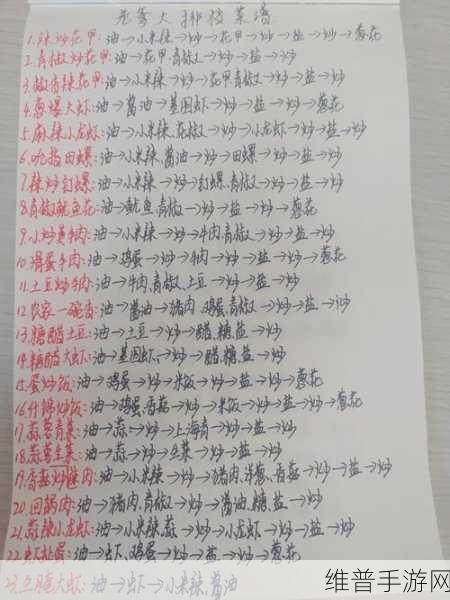 老爹大排档菜谱
1.辣炒花甲:油→小米辣→炒→花甲→炒→盐→炒→葱花
2.青椒炒花甲:油→花甲.青椒→炒→盐→炒
3.椒香辣花甲:油→小米辣→炒→花甲青椒→炒→盐→炒
4.葱爆大虾:油→酱油→基围虾→炒→盐→葱花
5.麻辣小龙虾:油→小米辣.花椒→炒→小龙虾→炒→盐→炒
6.吮指田螺:油→小米辣,酱油→炒→田螺→炒→盐→炒
7.辣炒钉螺:油→小米辣→炒→钉螺.青椒→炒→盐→炒
8.青椒鱿鱼花:油→鱿鱼青椒→炒→盐→炒→葱花
9.小炒黄牛肉:油→小米辣→炒→牛肉,青椒→炒→盐→炒
10.滑蛋牛肉:油→鸡蛋→炒→牛肉→炒→盐→炒→葱花
11.土豆炒牛肉:油→牛肉,青椒,土豆→炒→盐→炒
12.农家一碗香:油→酱油→猪肉,鸡蛋,青椒→炒→盐→炒
13.糖醋土豆:油→土豆→炒→醋,糖,盐→炒
14.糖醋大虾:油→基围虾→炒→醋,糖,盐→炒
15.蛋炒饭:油→鸡蛋→炒→米饭→炒→盐→炒→葱花
16.什锦炒饭:油→鸡蛋,香菇→炒→米饭→炒→盐→炒→葱花
17.蒜蓉青菜:油→蒜→炒→上海青→炒→盐→炒
18.蒜蓉生菜:油→蒜→炒→生菜→炒→盐→炒
19.香菇炒肉:油→小米辣→炒→猪肉,洋葱,香菇→炒→盐→炒
20.回锅肉:油→猪肉,青椒→炒→酱油,糖,盐→炒
21.蒜辣小龙虾:油→小米辣,蒜→炒→小龙虾→炒→盐→炒
22.虾扯蛋:油→虾,鸡蛋→炒→盐→炒→葱花
23.生腌大虾:油→虾→小米辣,酱油
维普手游网